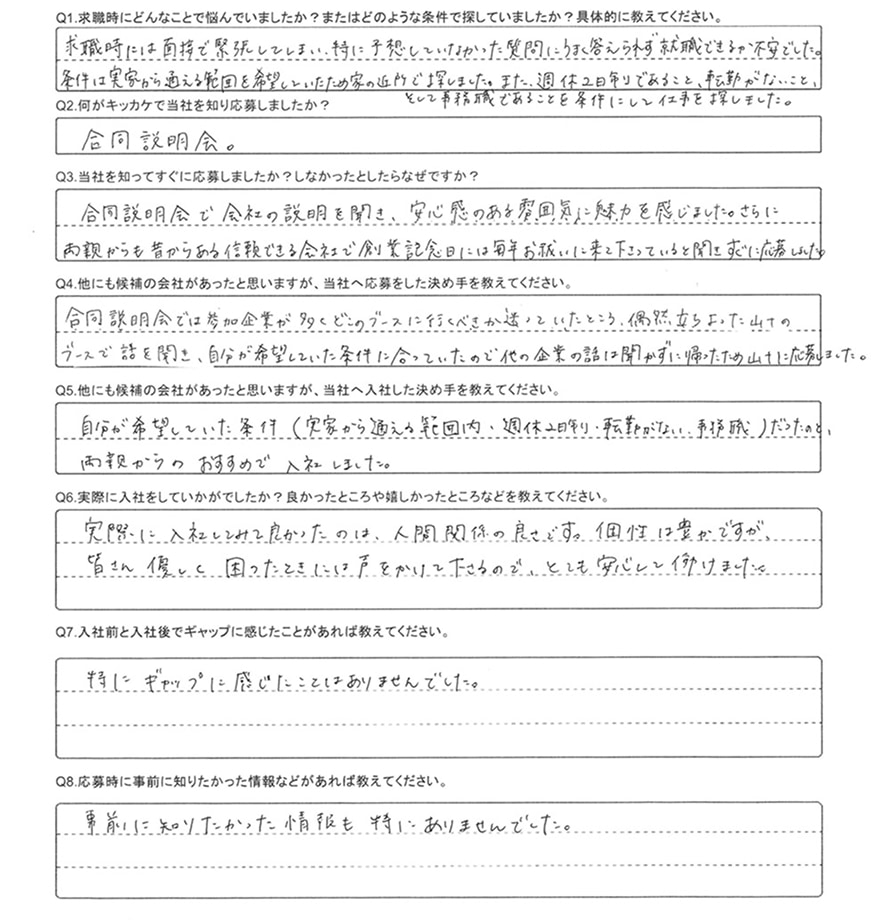 Q1.求職時にどんなことで悩んでいましたか？またはどのような条件で探していましたか？具体的に教えてください。
求職時には面接で緊張してしまい、特に予想していなかった質問にうまく答えられず就職できるか不安でした。
条件は実家から通える範囲を希望していたため家の近所で探しました。また、週休2日制であること、転勤がないこと、
そして事務職であることを条件にして仕事を探しました。
Q2.何がキッカケで当社を知り応募しましたか？
合同説明会。
Q3.当社を知ってすぐに応募しましたか？しなかったとしたらなぜですか？
合同説明会で会社の説明を聞き、安心感のある雰囲気に魅力を感じました。さらに
両親からも昔からある信頼できる会社で創業記念日には毎年お祓いに来て下さっていると聞きすぐに応募しました。
Q4.他にも候補の会社があったと思いますが、当社へ応募をした決め手を教えてください。
合同説明会では参加企業が多くどこのブースに行くべきか迷っていたところ、偶然立ちよった山十の
ブースで話を聞き、自分が希望していた条件に合っていたので他の企業の話は聞かずに帰ったため山十に応募しました。
Q5.他にも候補の会社があったと思いますが、当社へ入社した決め手を教えてください。
自分が希望していた条件（実家から通える範囲内・週休2日制・転勤がない・事務職）だったのと、
両親からのおすすめで入社しました。
Q6.実際に入社をしていかがでしたか？良かったところや嬉しかったところなどを教えてください。
実際に入社してみて良かったのは、人間関係の良さです。個性は豊かですが、
皆さん優しく困ったときには声をかけて下さるので、とても安心して働けました。
Q7.入社前と入社後でギャップに感じたことがあれば教えてください。
特にギャップに感じたことはありませんでした。
Q8.応募時に事前に知りたかった情報などがあれば教えてください。
事前に知りたかった情報も特にありませんでした。